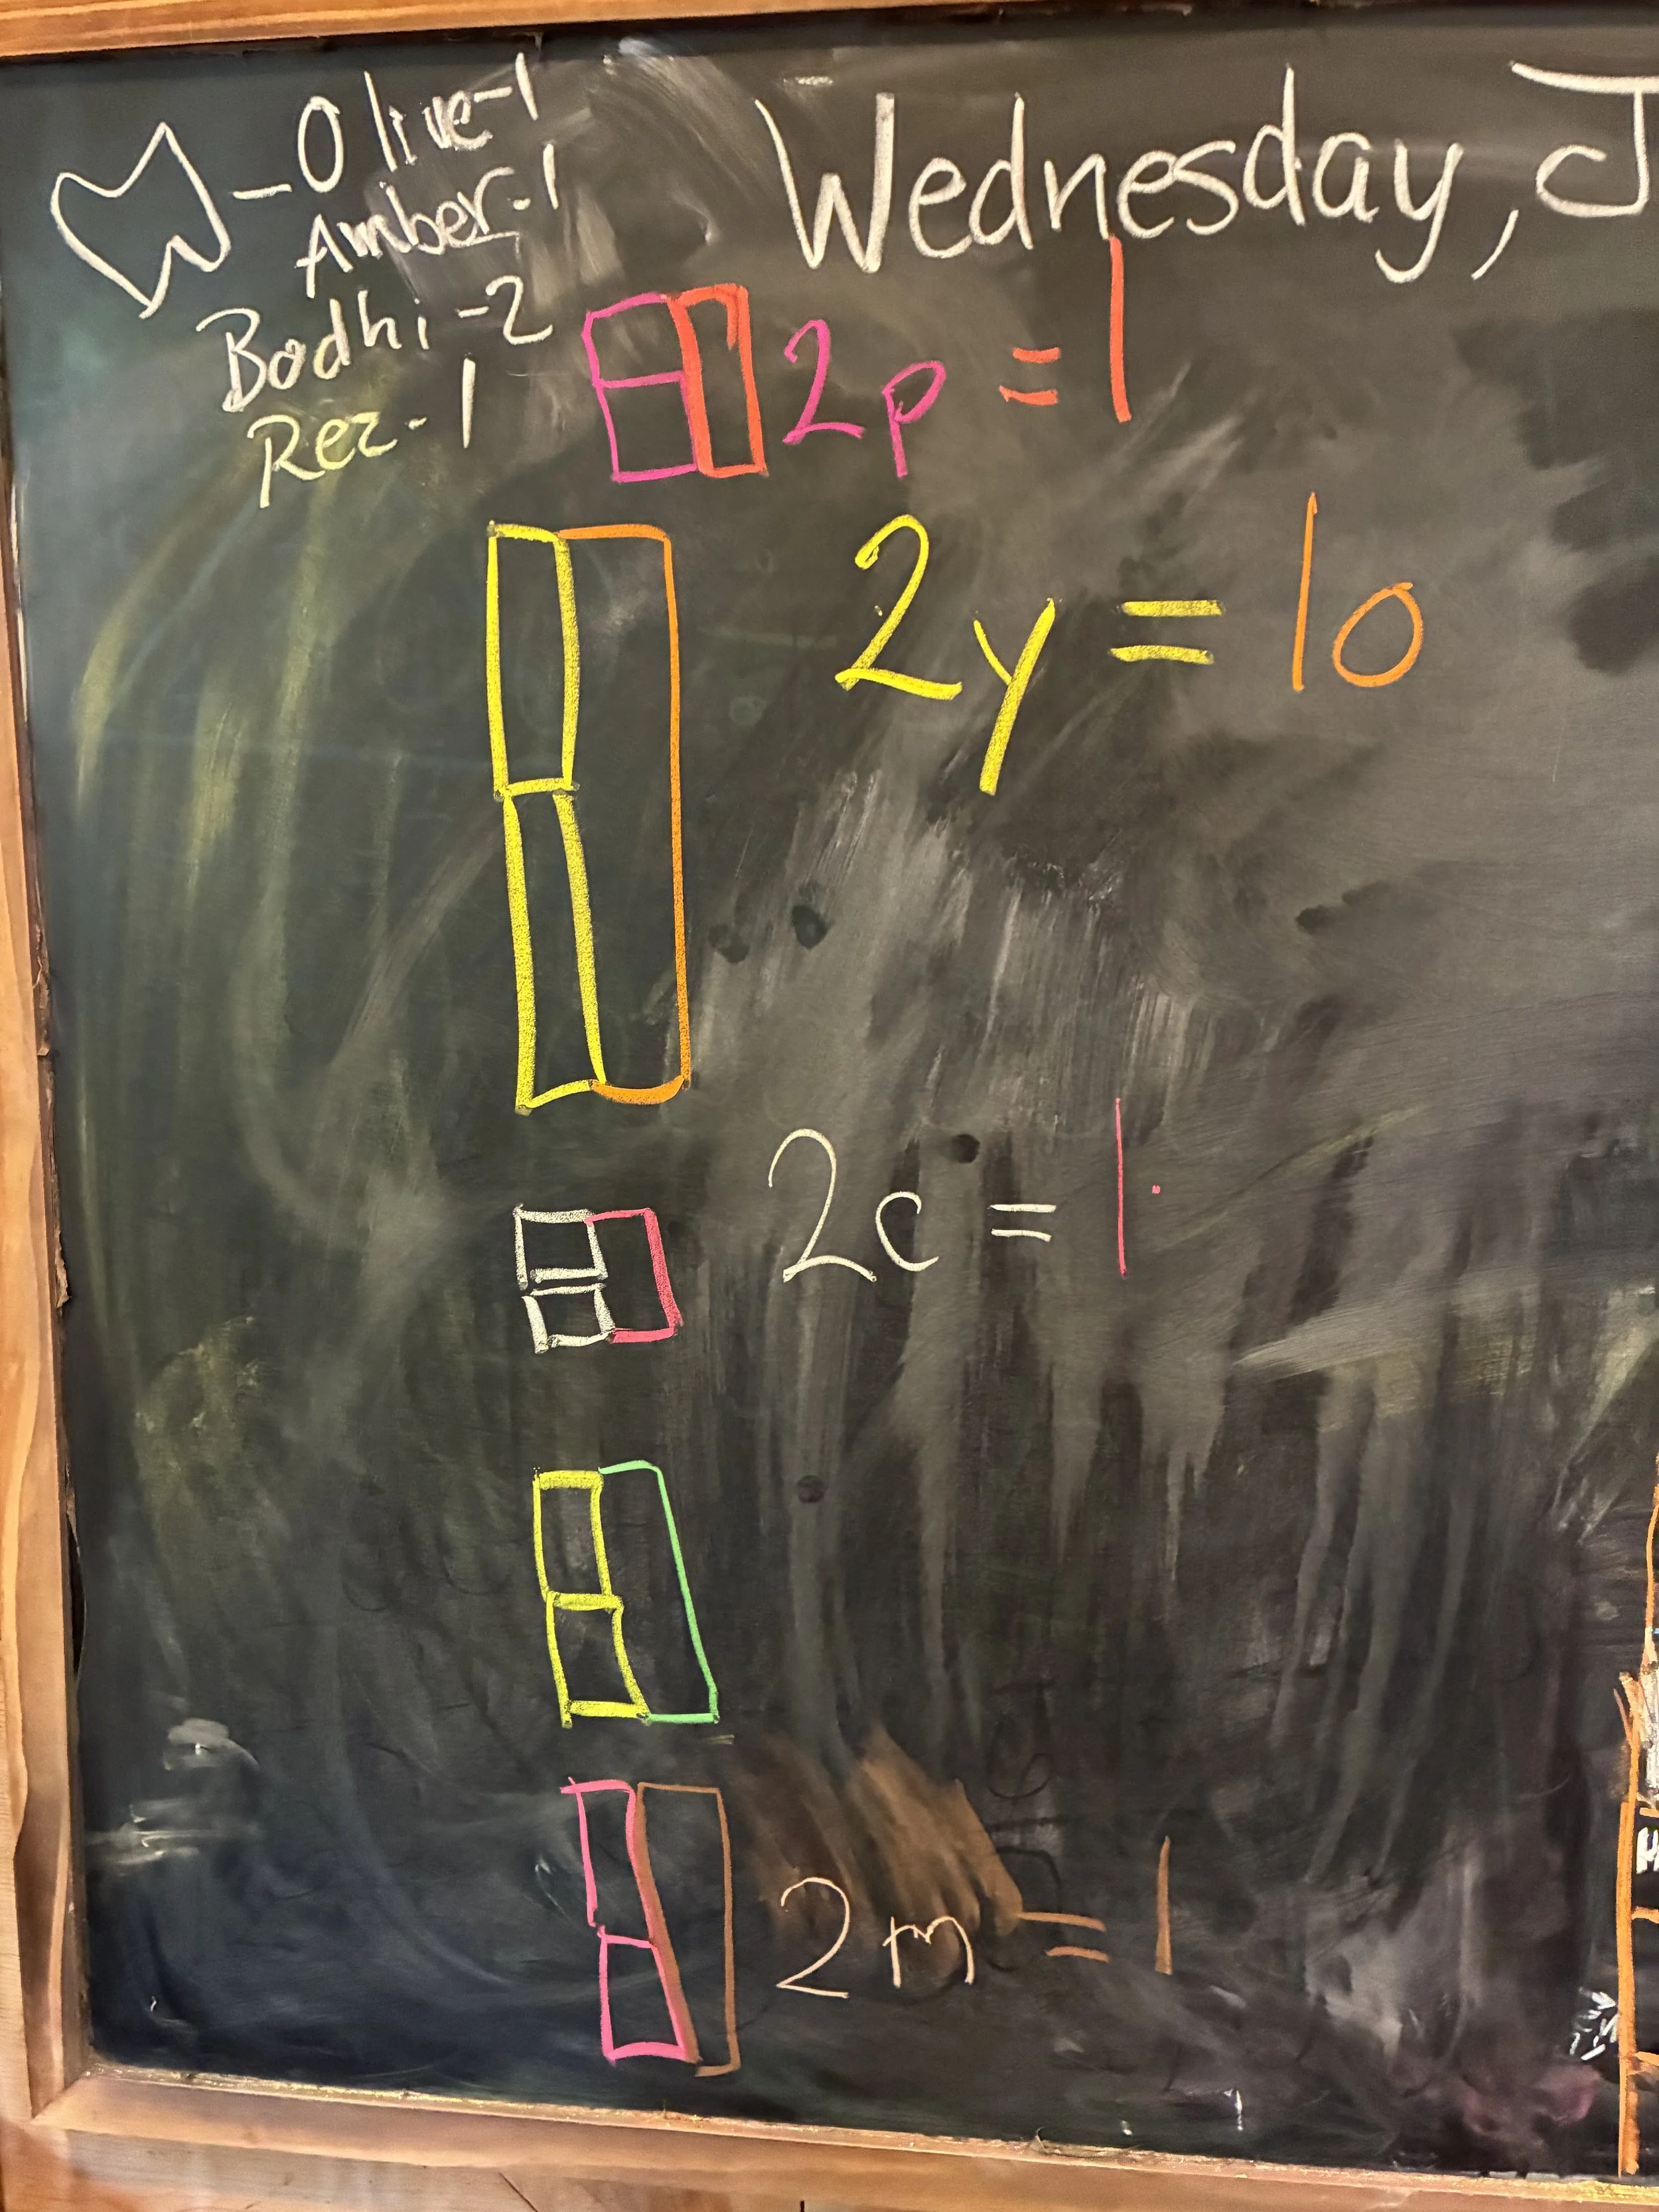 Olive-1
Amber-1
Bodhi-2
Rez-1
Wednesday, J
2p = 1
2y = 1o
2c = 1
2m = 1